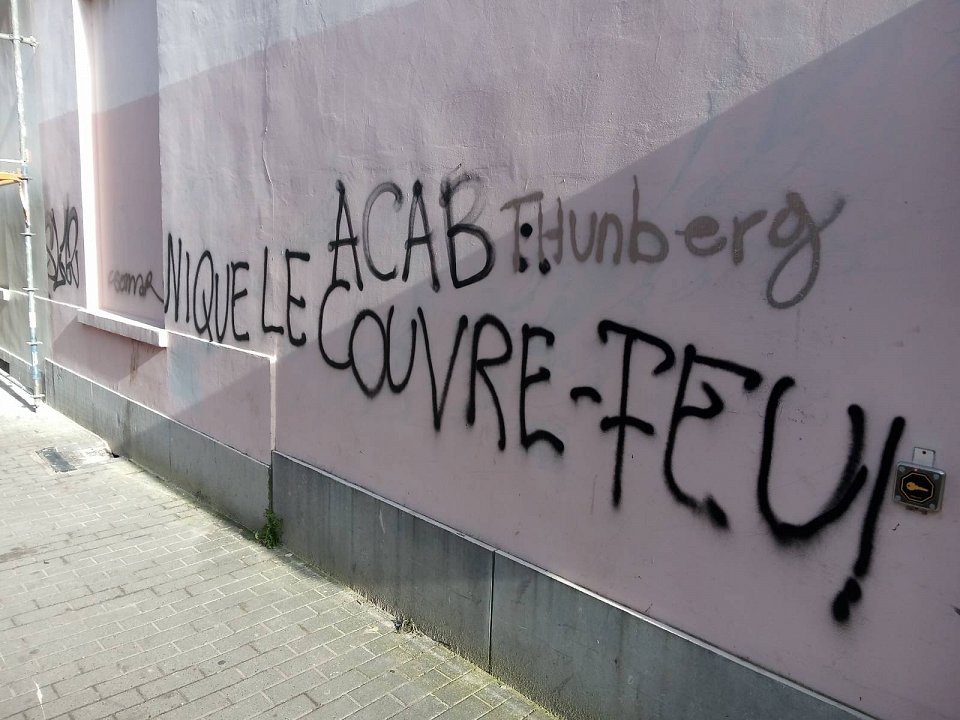 ACAB : THunberg
NIQUE LE COUVRE-FEU!